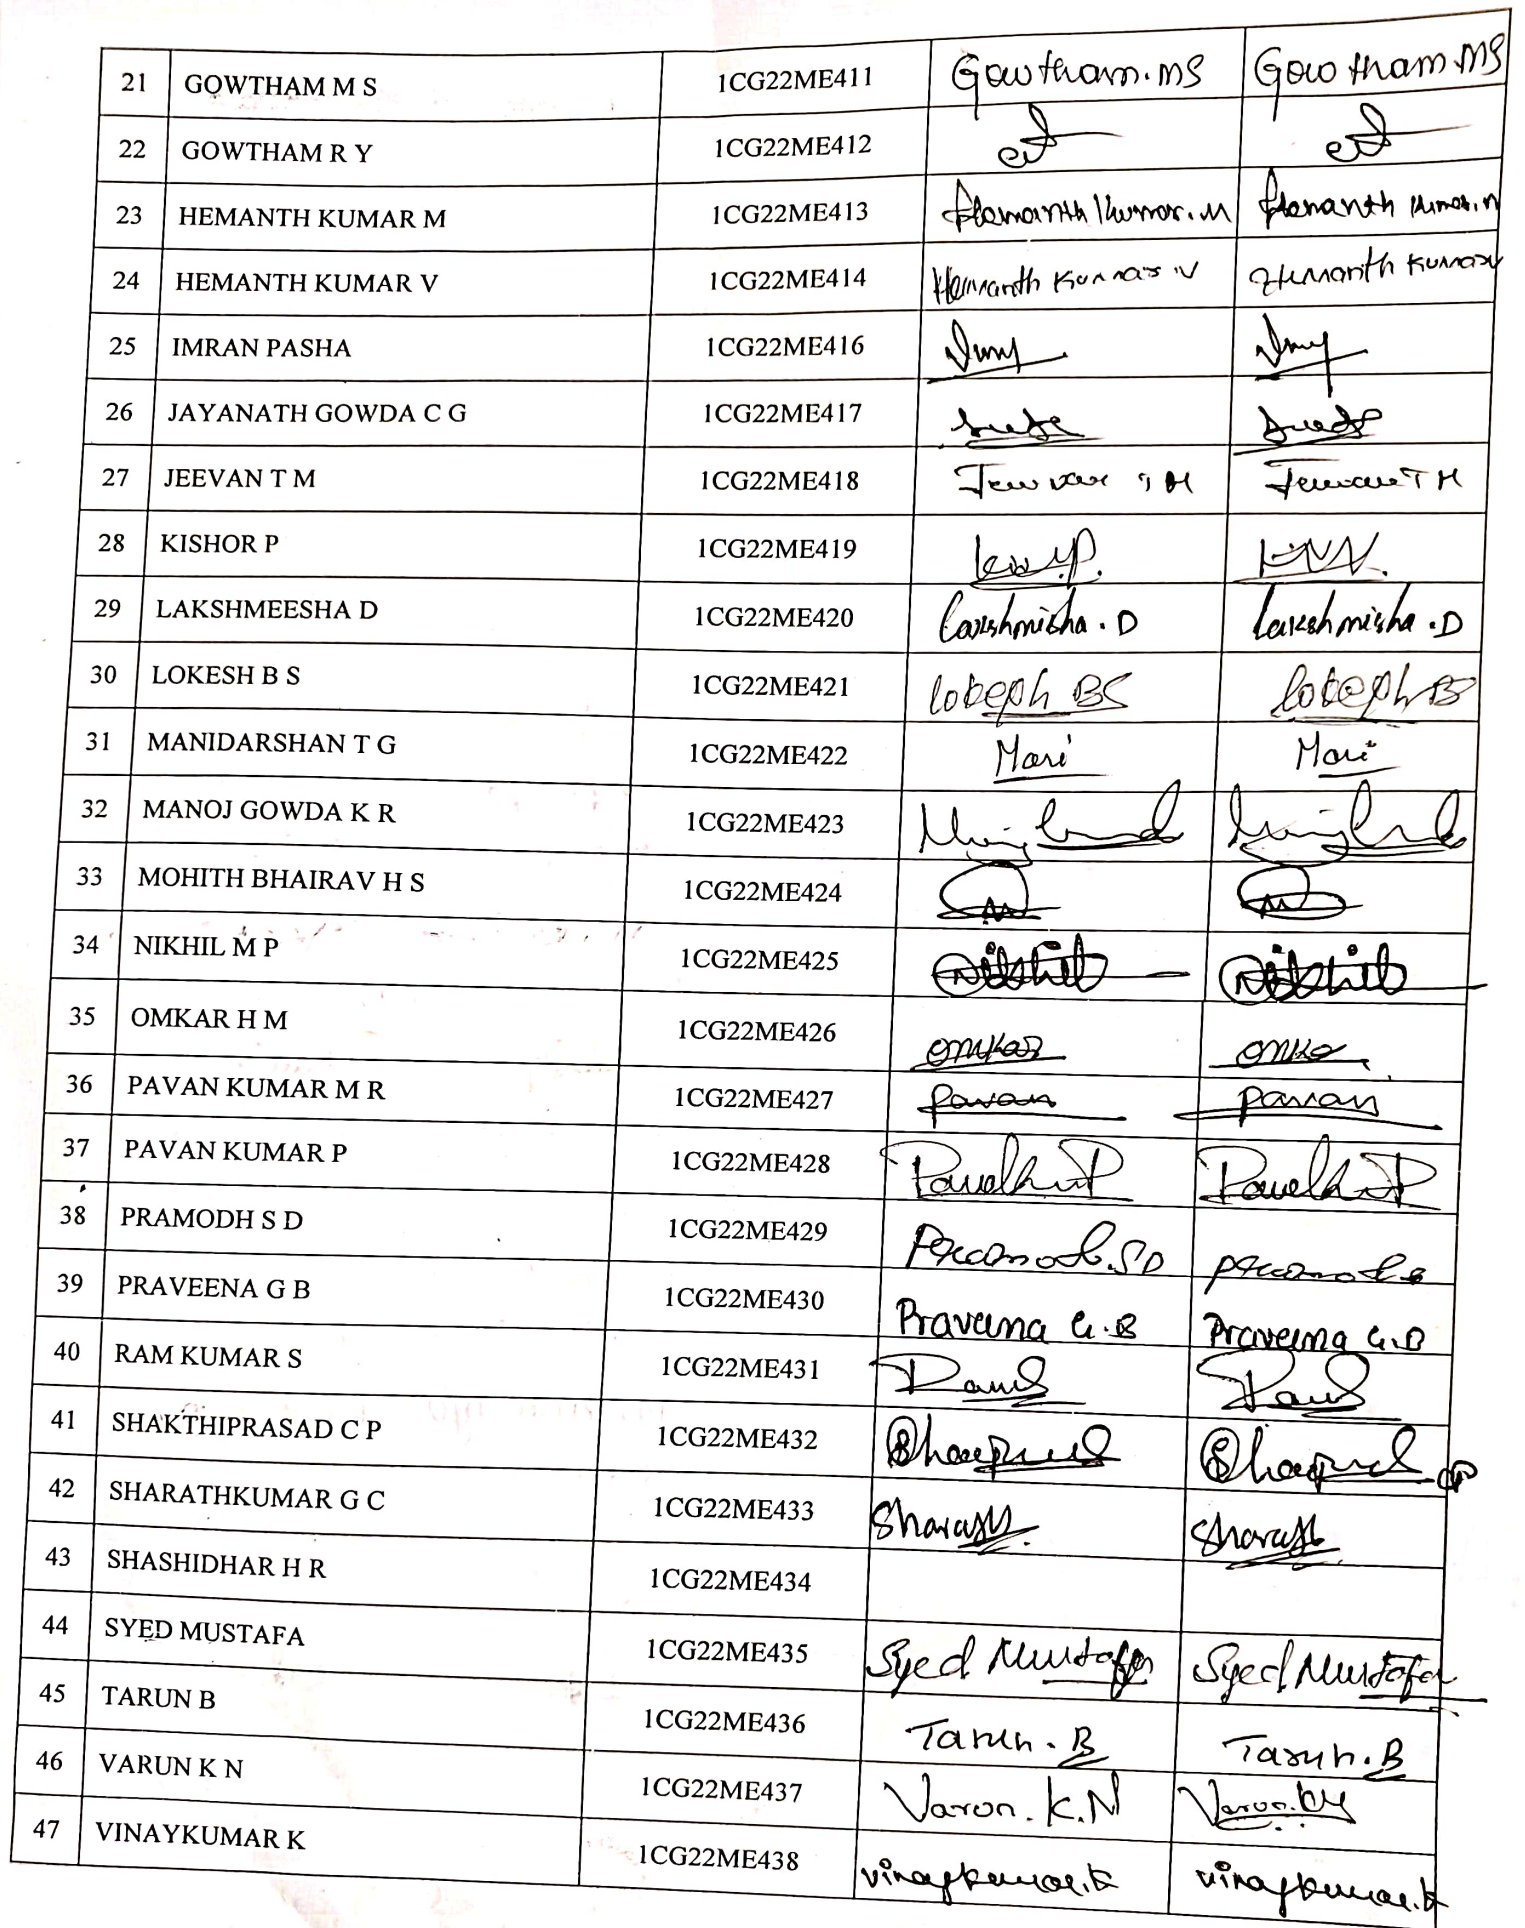 21 GOWTHAM M S 1CG22ME411 Gowtham.MS Gowtham MS
22 GOWTHAM R Y 1CG22ME412
23 HEMANTH KUMAR M 1CG22ME413 Hemanth Kumar.M Hemanth Kumar.M
24 HEMANTH KUMAR V 1CG22ME414 Hemanth Kumar V Hemanth Kumar V
25 IMRAN PASHA 1CG22ME416
26 JAYANATH GOWDA C G 1CG22ME417
27 JEEVAN T M 1CG22ME418 Jeevan T M Jeevan T M
28 KISHOR P 1CG22ME419
29 LAKSHMEESHA D 1CG22ME420 Lakshmisha.D Lakshmisha.D
30 LOKESH B S 1CG22ME421 Lokesh BS Lokesh BS
31 MANIDARSHAN T G 1CG22ME422 Mani Mani
32 MANOJ GOWDA K R 1CG22ME423
33 MOHITH BHAIRAV H S 1CG22ME424
34 NIKHIL M P 1CG22ME425 Nikhil Nikhil
35 OMKAR H M 1CG22ME426 omkar
36 PAVAN KUMAR M R 1CG22ME427 Pavan Pavan
37 PAVAN KUMAR P 1CG22ME428
38 PRAMODH S D 1CG22ME429 Pramodh.SD
39 PRAVEENA G B 1CG22ME430 Praveena G.B Praveena G.B
40 RAM KUMAR S 1CG22ME431
41 SHAKTHIPRASAD C P 1CG22ME432
42 SHARATHKUMAR G C 1CG22ME433 Sharath Sharath
43 SHASHIDHAR H R 1CG22ME434
44 SYED MUSTAFA 1CG22ME435 Syed Mustafa Syed Mustafa
45 TARUN B 1CG22ME436 Tarun.B Tarun.B
46 VARUN K N 1CG22ME437 Varun.K.N Varun.KN
47 VINAYKUMAR K 1CG22ME438 vinaykumar.k vinaykumar.k